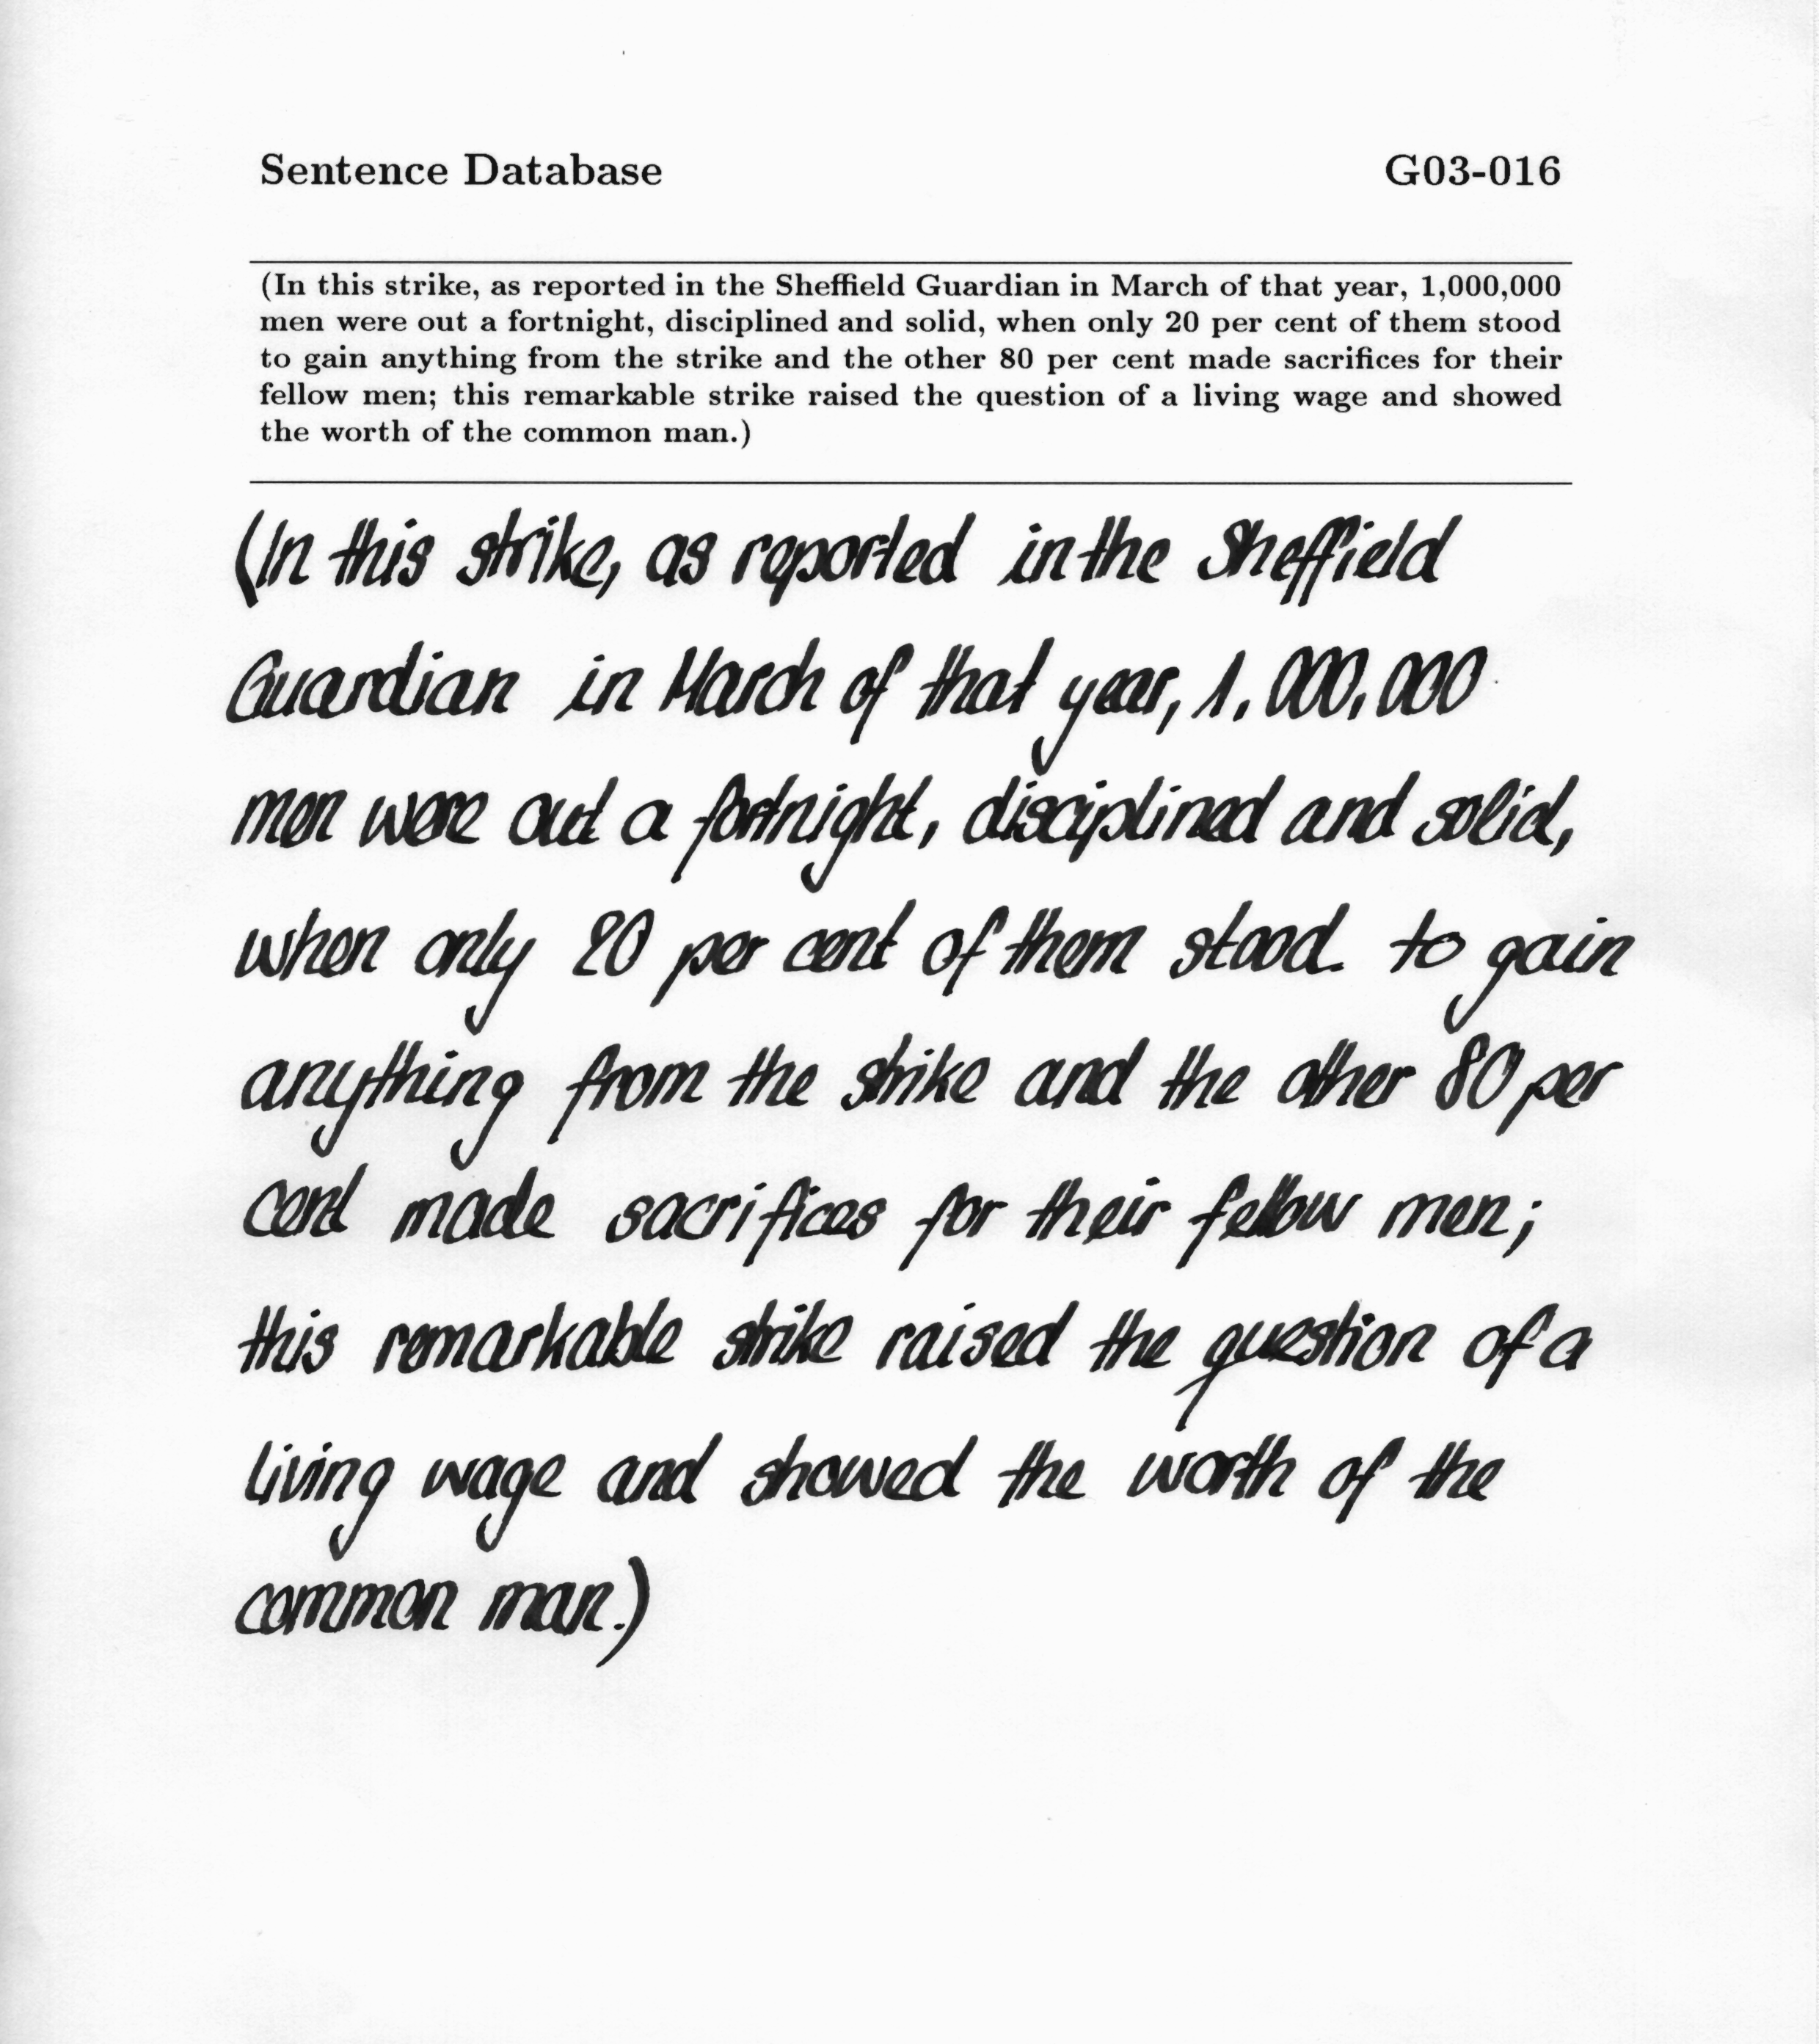 Sentence Database G03-016
(In this strike, as reported in the Sheffield Guardian in March of that year, 1,000,000
men were out a fortnight, disciplined and solid, when only 20 per cent of them stood
to gain anything from the strike and the other 80 per cent made sacrifices for their
fellow men; this remarkable strike raised the question of a living wage and showed
the worth of the common man.)
(In this strike, as reported in the Sheffield
Guardian in March of that year, 1.000.000
men were out a fortnight, disciplined and solid,
when only 20 per cent of them stood. to gain
anything from the strike and the other 80 per
cent made sacrifices for their fellow men;
this remarkable strike raised the question of a
living wage and showed the worth of the
common man.)